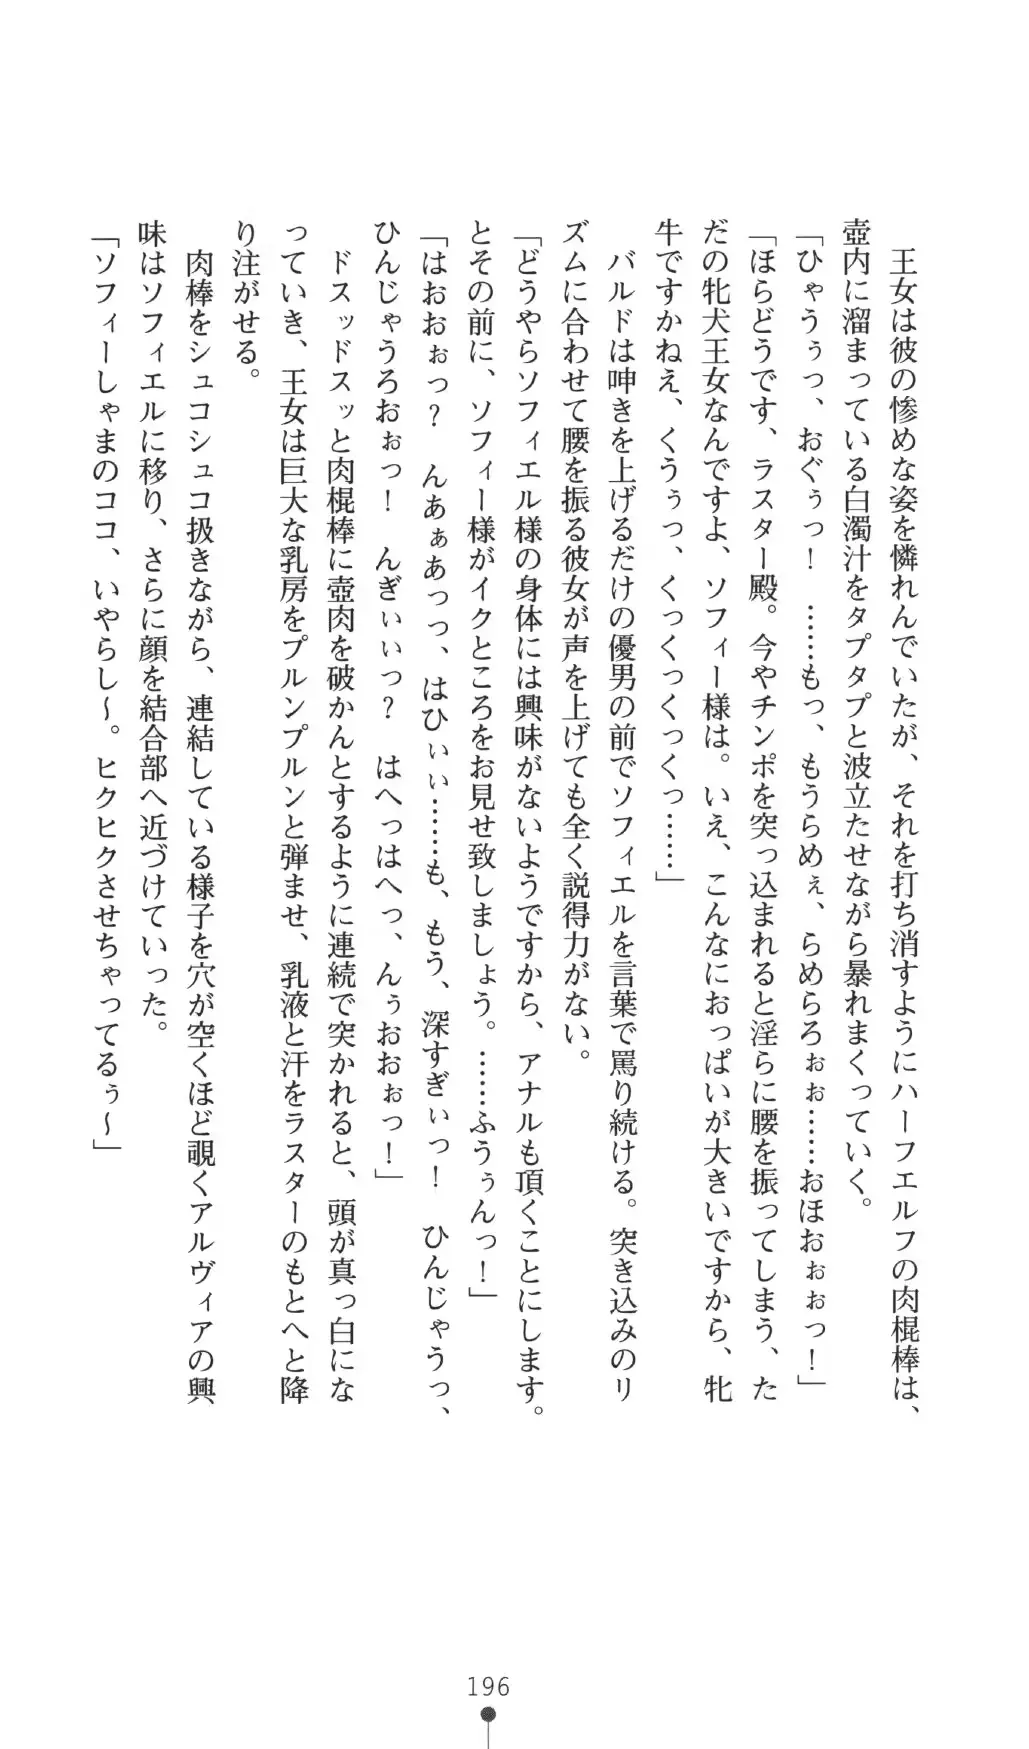 王女は彼の惨めな姿を憐れんでいたが、それを打ち消すようにハーフエルフの肉棍棒は、
壺内に溜まっている白濁汁をタプタプと波立たせながら暴れまくっていく。
「ひゃうぅっ、おぐぅっ！　……もっ、もうらめぇ、らめらろぉぉ……おほおぉぉっ！」
「ほらどうです、ラスター殿。今やチンポを突っ込まれると淫らに腰を振ってしまう、た
だの牝犬王女なんですよ、ソフィー様は。いえ、こんなにおっぱいが大きいですから、牝
牛ですかねえ、くうぅっ、くっくっくっくっ……」
バルドは呻きを上げるだけの優男の前でソフィエルを言葉で罵り続ける。突き込みのリ
ズムに合わせて腰を振る彼女が声を上げても全く説得力がない。
「どうやらソフィエル様の身体には興味がないようですから、アナルも頂くことにします。
とその前に、ソフィー様がイクところをお見せ致しましょう。……ふうぅんっ！」
「はおおぉっ？　んあぁあっっ、はひぃぃ……も、もう、深すぎぃっ！　ひんじゃうっ、
ひんじゃうろおぉっ！　んぎぃぃっ？　はへっはへっ、んぅおおぉっ！」
ドスッドスッと肉棍棒に壺肉を破かんとするように連続で突かれると、頭が真っ白にな
っていき、王女は巨大な乳房をプルンプルンと弾ませ、乳液と汗をラスターのもとへと降
り注がせる。
肉棒をシュコシュコ扱きながら、連結している様子を穴が空くほど覗くアルヴィアの興
味はソフィエルに移り、さらに顔を結合部へ近づけていった。
「ソフィーしゃまのココ、いやらし～。ヒクヒクさせちゃってるぅ～」
196